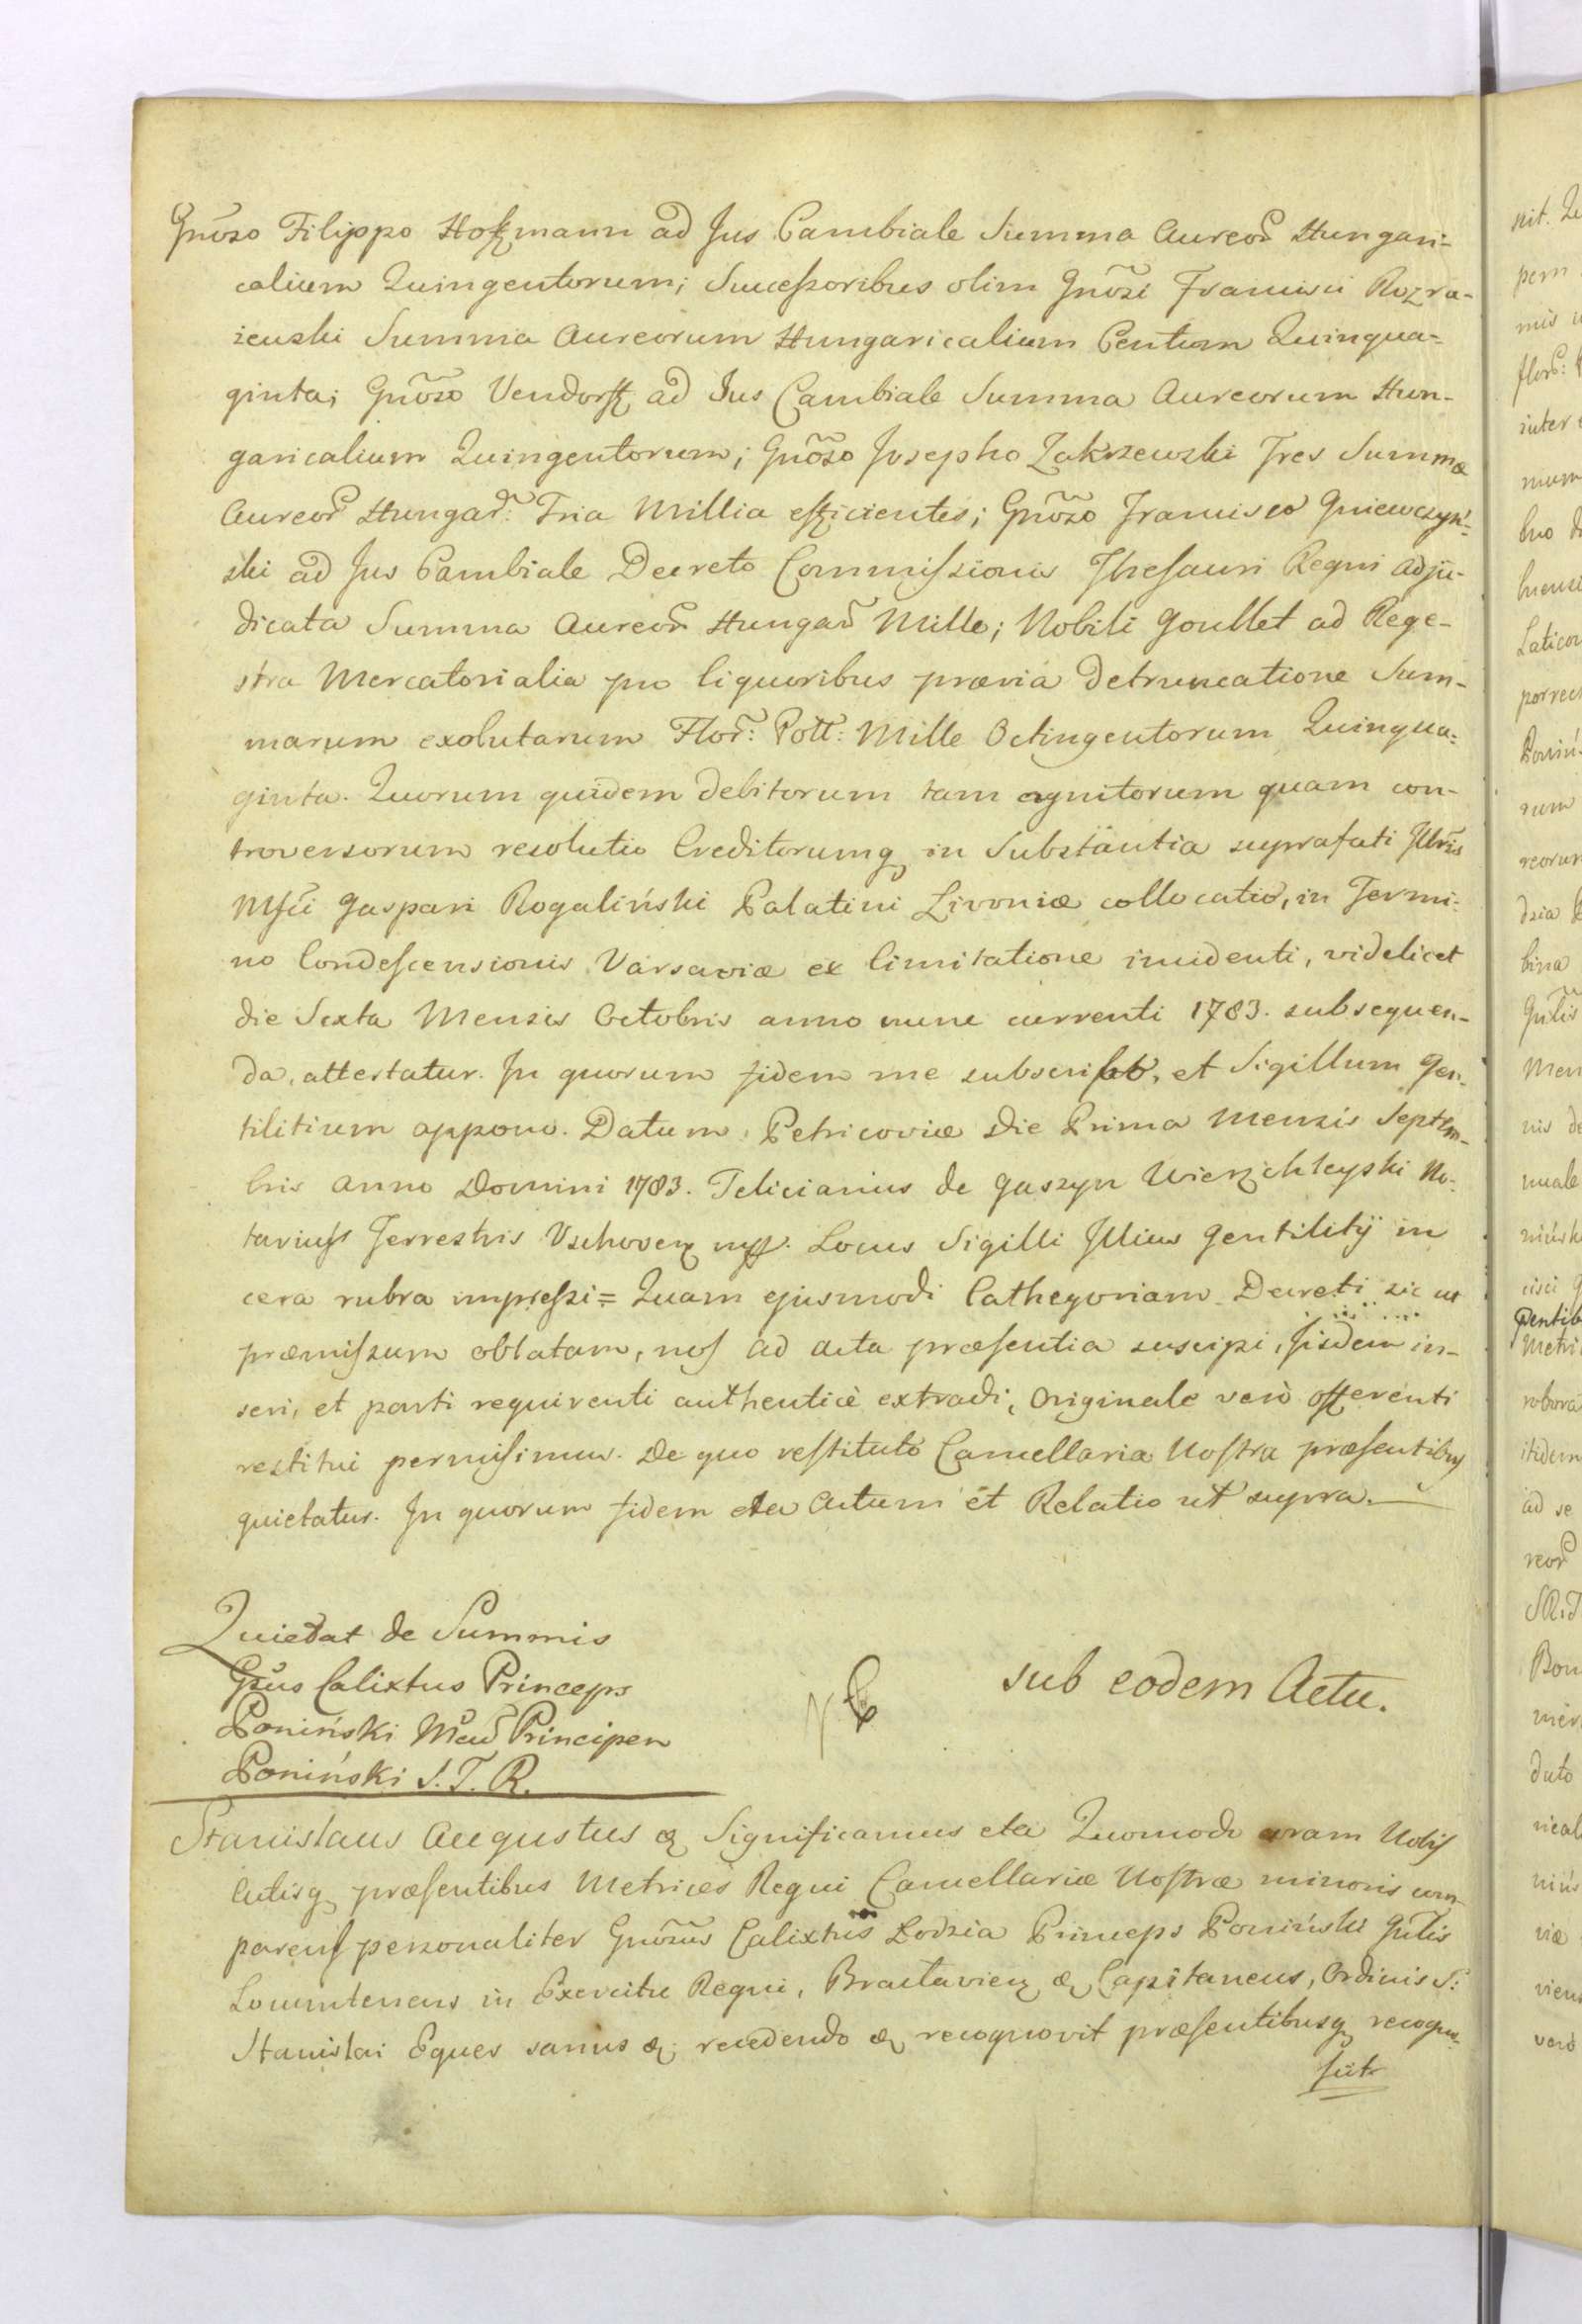 Gnõso Filippo Hoffmann ad Jus Cambiale Summa Aureor̃ Hungari-
calium Quingentorum; Successoribus olim Gnõsi Francisci Rozra-
zewski Summa Aureorum Hungaricalium Centum Quinqua-
ginta; Gnõso Vendorff ad Jus Cambiale Summa Aureorum Hun-
garicalium Quingentorum; Gnõso Josepho Zakrzewski Tres Summæ
Aureor̃ Hungar̃: Tria Millia efficientes; Gnõso Francisco Gniewczyń-
ski ad Jus Cambiale Decreto Commissionis Thesauri Regni adju-
dicata Summa Aureor̃ Hungar̃ Mille; Nobili Goullet ad Rege-
stra Mercatorialia pro liquoribus prævia detruncatione Sum-
marum exolutarum Flor̃: Poll: Mille Octingentorum Quinqua-
ginta. Quorum quidem debitorum tam agnitorum quam con-
troversorum resolutio Creditorumq in Substantia suprafati Illris
Mfci Gaspari Rogaliński Palatini Livoniæ collocatio, in Termi-
no Condescensionis Varsaviæ ex limitatione incidenti, videlicet
die Sexta Mensis Octobris anno nunc currenti 1783. subsequen-
da, attestatur. In quorum fidem me subscribo, et Sigillum Gen-
tilitium appono. Datum Petricoviæ die Prima Mensis Septem-
bris Anno Domini 1783. Felicianus de Gaszyn Wierzchleyski No-
tarius Terrestris Vschoven mpp. Locus Sigilli Illius Gentilitij in
cera rubra impressi = Quam ejusmodi Cathegoriam Decreti sic ut
præmissum oblatam, nos ad acta præsentia suscipi, iisdem in-
seri, et parti requirenti authenticè extradi, Originale verò offerenti
restitui permisimus. De quo restituto Cancellaria Nostra præsentibus
quietatur. In quorum fidem eta Actum et Relatio ut supra.
Quietat de Summis
Gsus Calixtus Princeps
Poniński Mcum Principem
Poniński S. T. R.
sub eodem Actu.
Stanislaus Augustus & Significamus eta Quomodo coram Nobis
Actisq præsentibus Metrices Regni Cancellariæ Nostræ minoris com-
parens personaliter Gnõsus Calixtus Lodzia Princeps Poniński Gnlis
Locumtenens in Exercitu Regni, Braclavien & Capitaneus, Ordinis S:
Stanislai Eques sanus & recedendo & recognovit præsentibusq recogno-
scit